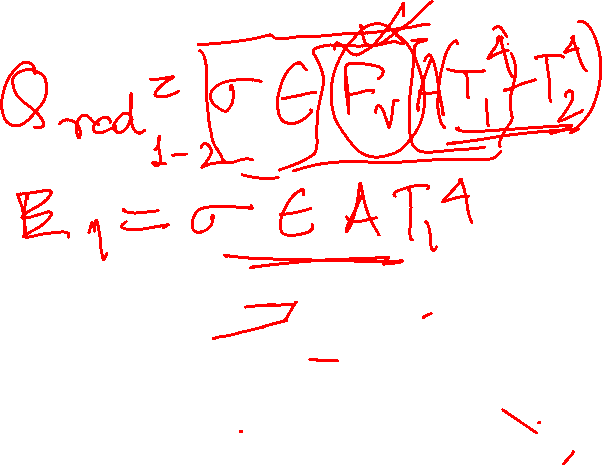 Q rad 1-2 = σ ∈ F_v A (T_1^4 - T_2^4)
E_1 = σ ∈ A T_1^4